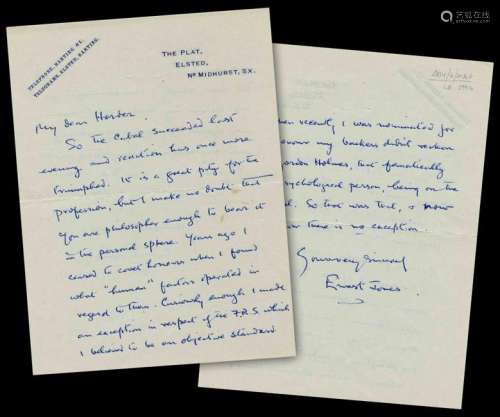 TELEPHONE, HARTING 41.
TELEGRAMS, ELSTED, HARTING.
THE PLAT,
ELSTED,
Nr MIDHURST, SX.
My dear
So the Cabal succeeded last
evening and reaction has once more
triumphed. It is a great pity for the
profession, but I make no doubt that
you are philosopher enough to bear it
in the personal sphere. Years ago I
ceased to covet honours when I found
what "human" factors operated in
regard to them. Curiously enough I made
an exception in respect of the F.R.S. which
I believed to be an objective standard
when recently I was nominated for
honour my backers didn't reckon
Gordon Holmes, that fanatically
psychological person, being on the
So that was that, & now
there is no exception.
Yours very sincerely
Ernest Jones
艺狐在线